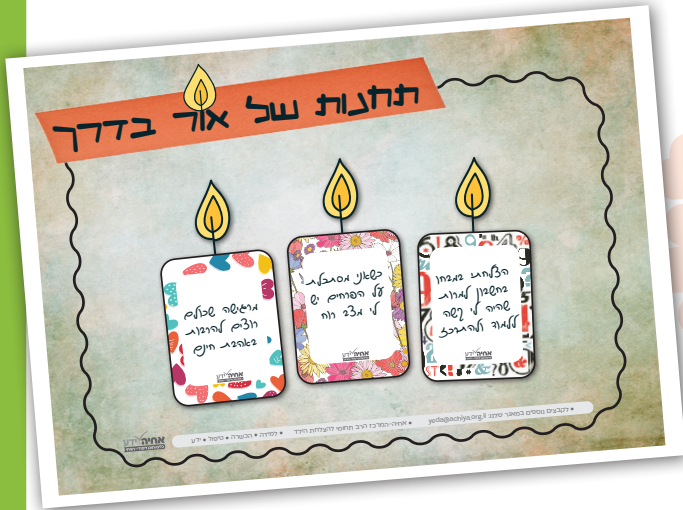 תחנות של אור בדרך
הצלחתי במבחן
בחשבון למרות
שהיה לי קשה
ללמוד ולהתרכז
כשאני מסתכלת
על הפרחים יש
לי מצב רוח
מרגישה שכולם
רוצים להרבות
באהבת חינם
אחיה ידע
אחיה ידע
אחיה ידע
אחיה ידע
• לקבצים נוספים במאגר פנינו: yeda@achiya.org.il • אחיה-המרכז הרב תחומי להצלחת הילד • למידה • הכשרה • טיפול • ידע